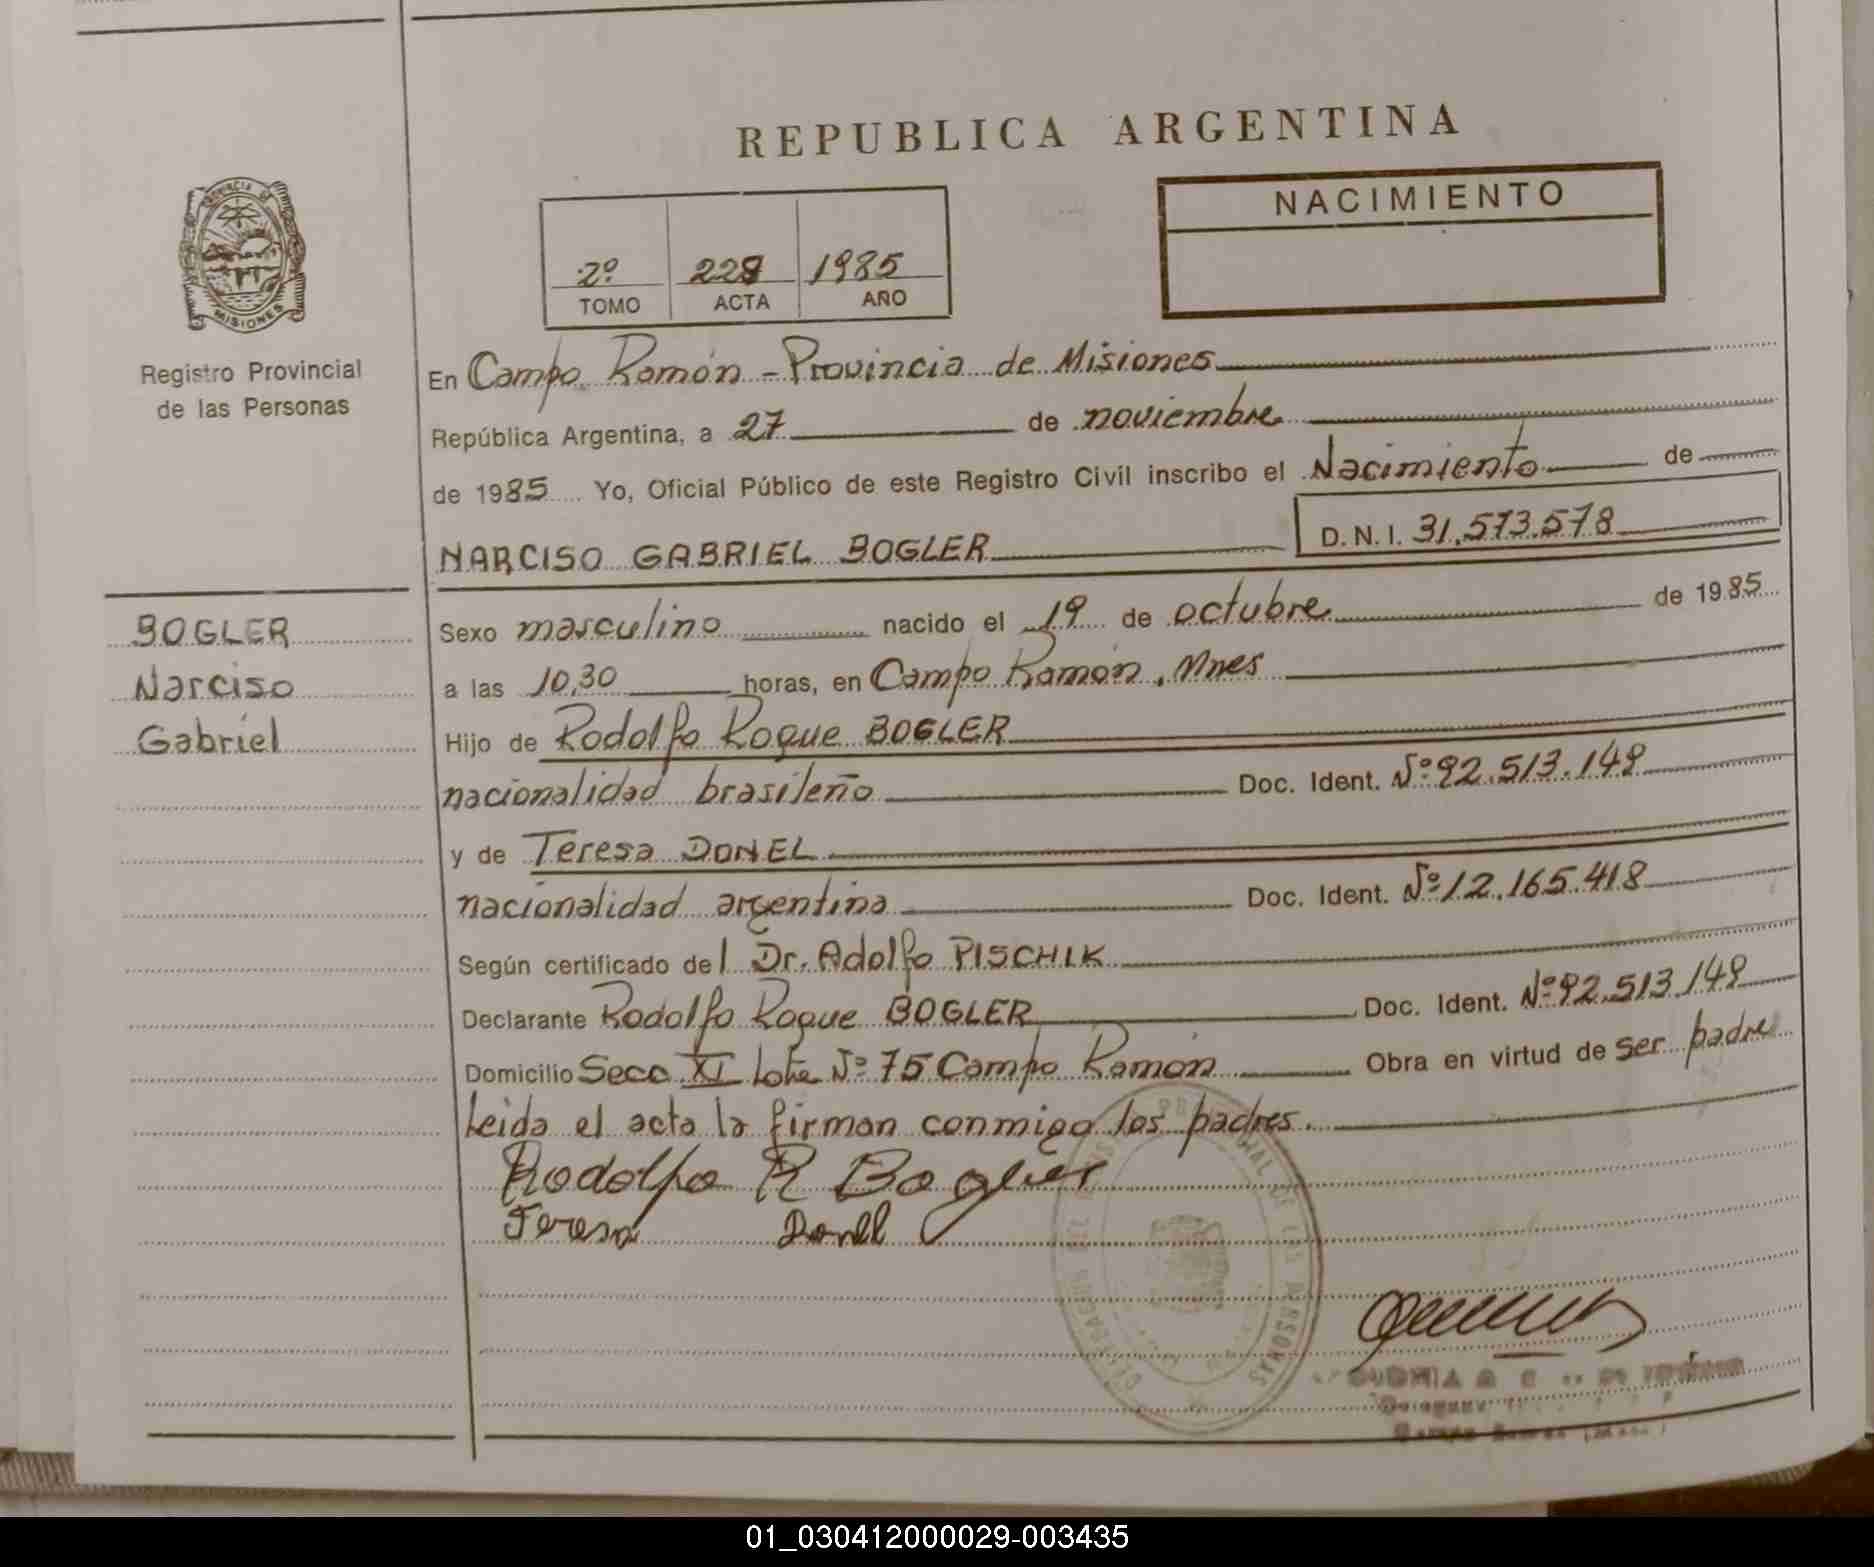 REPUBLICA ARGENTINA
PROVINCIA DE
MISIONES
Registro Provincial
de las Personas
2º 228 1985
TOMO ACTA AÑO
NACIMIENTO
En Campo Ramón - Provincia de Misiones
República Argentina, a 27 de noviembre
de 1985 Yo, Oficial Público de este Registro Civil inscribo el Nacimiento de
NARCISO GABRIEL BOGLER D.N.I. 31.573.578
BOGLER
Narciso
Gabriel
Sexo masculino nacido el 19 de octubre de 1985
a las 10,30 horas, en Campo Ramón, Mnes
Hijo de Rodolfo Roque BOGLER
nacionalidad brasileño Doc. Ident. Nº 92.513.149
y de Teresa DONEL
nacionalidad argentina Doc. Ident. Nº 12.165.418
Según certificado del Dr. Adolfo PISCHIK
Declarante Rodolfo Roque BOGLER Doc. Ident. Nº 92.513.149
Domicilio Secc XI Lote Nº 75 Campo Ramón Obra en virtud de ser padre
Leida el acta la firman conmigo los padres.
Rodolfo R Bogler
Teresa Donel
PROVINCIAL DE LAS PERSONAS
01_030412000029-003435